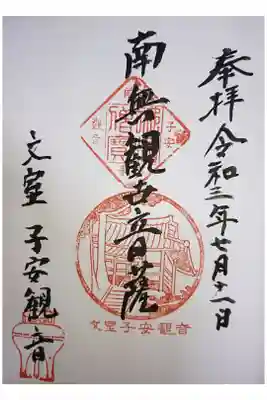 奉拝令和三年七月十一日
南無観世音薩
文室 子安観音
子安
文室子安観音